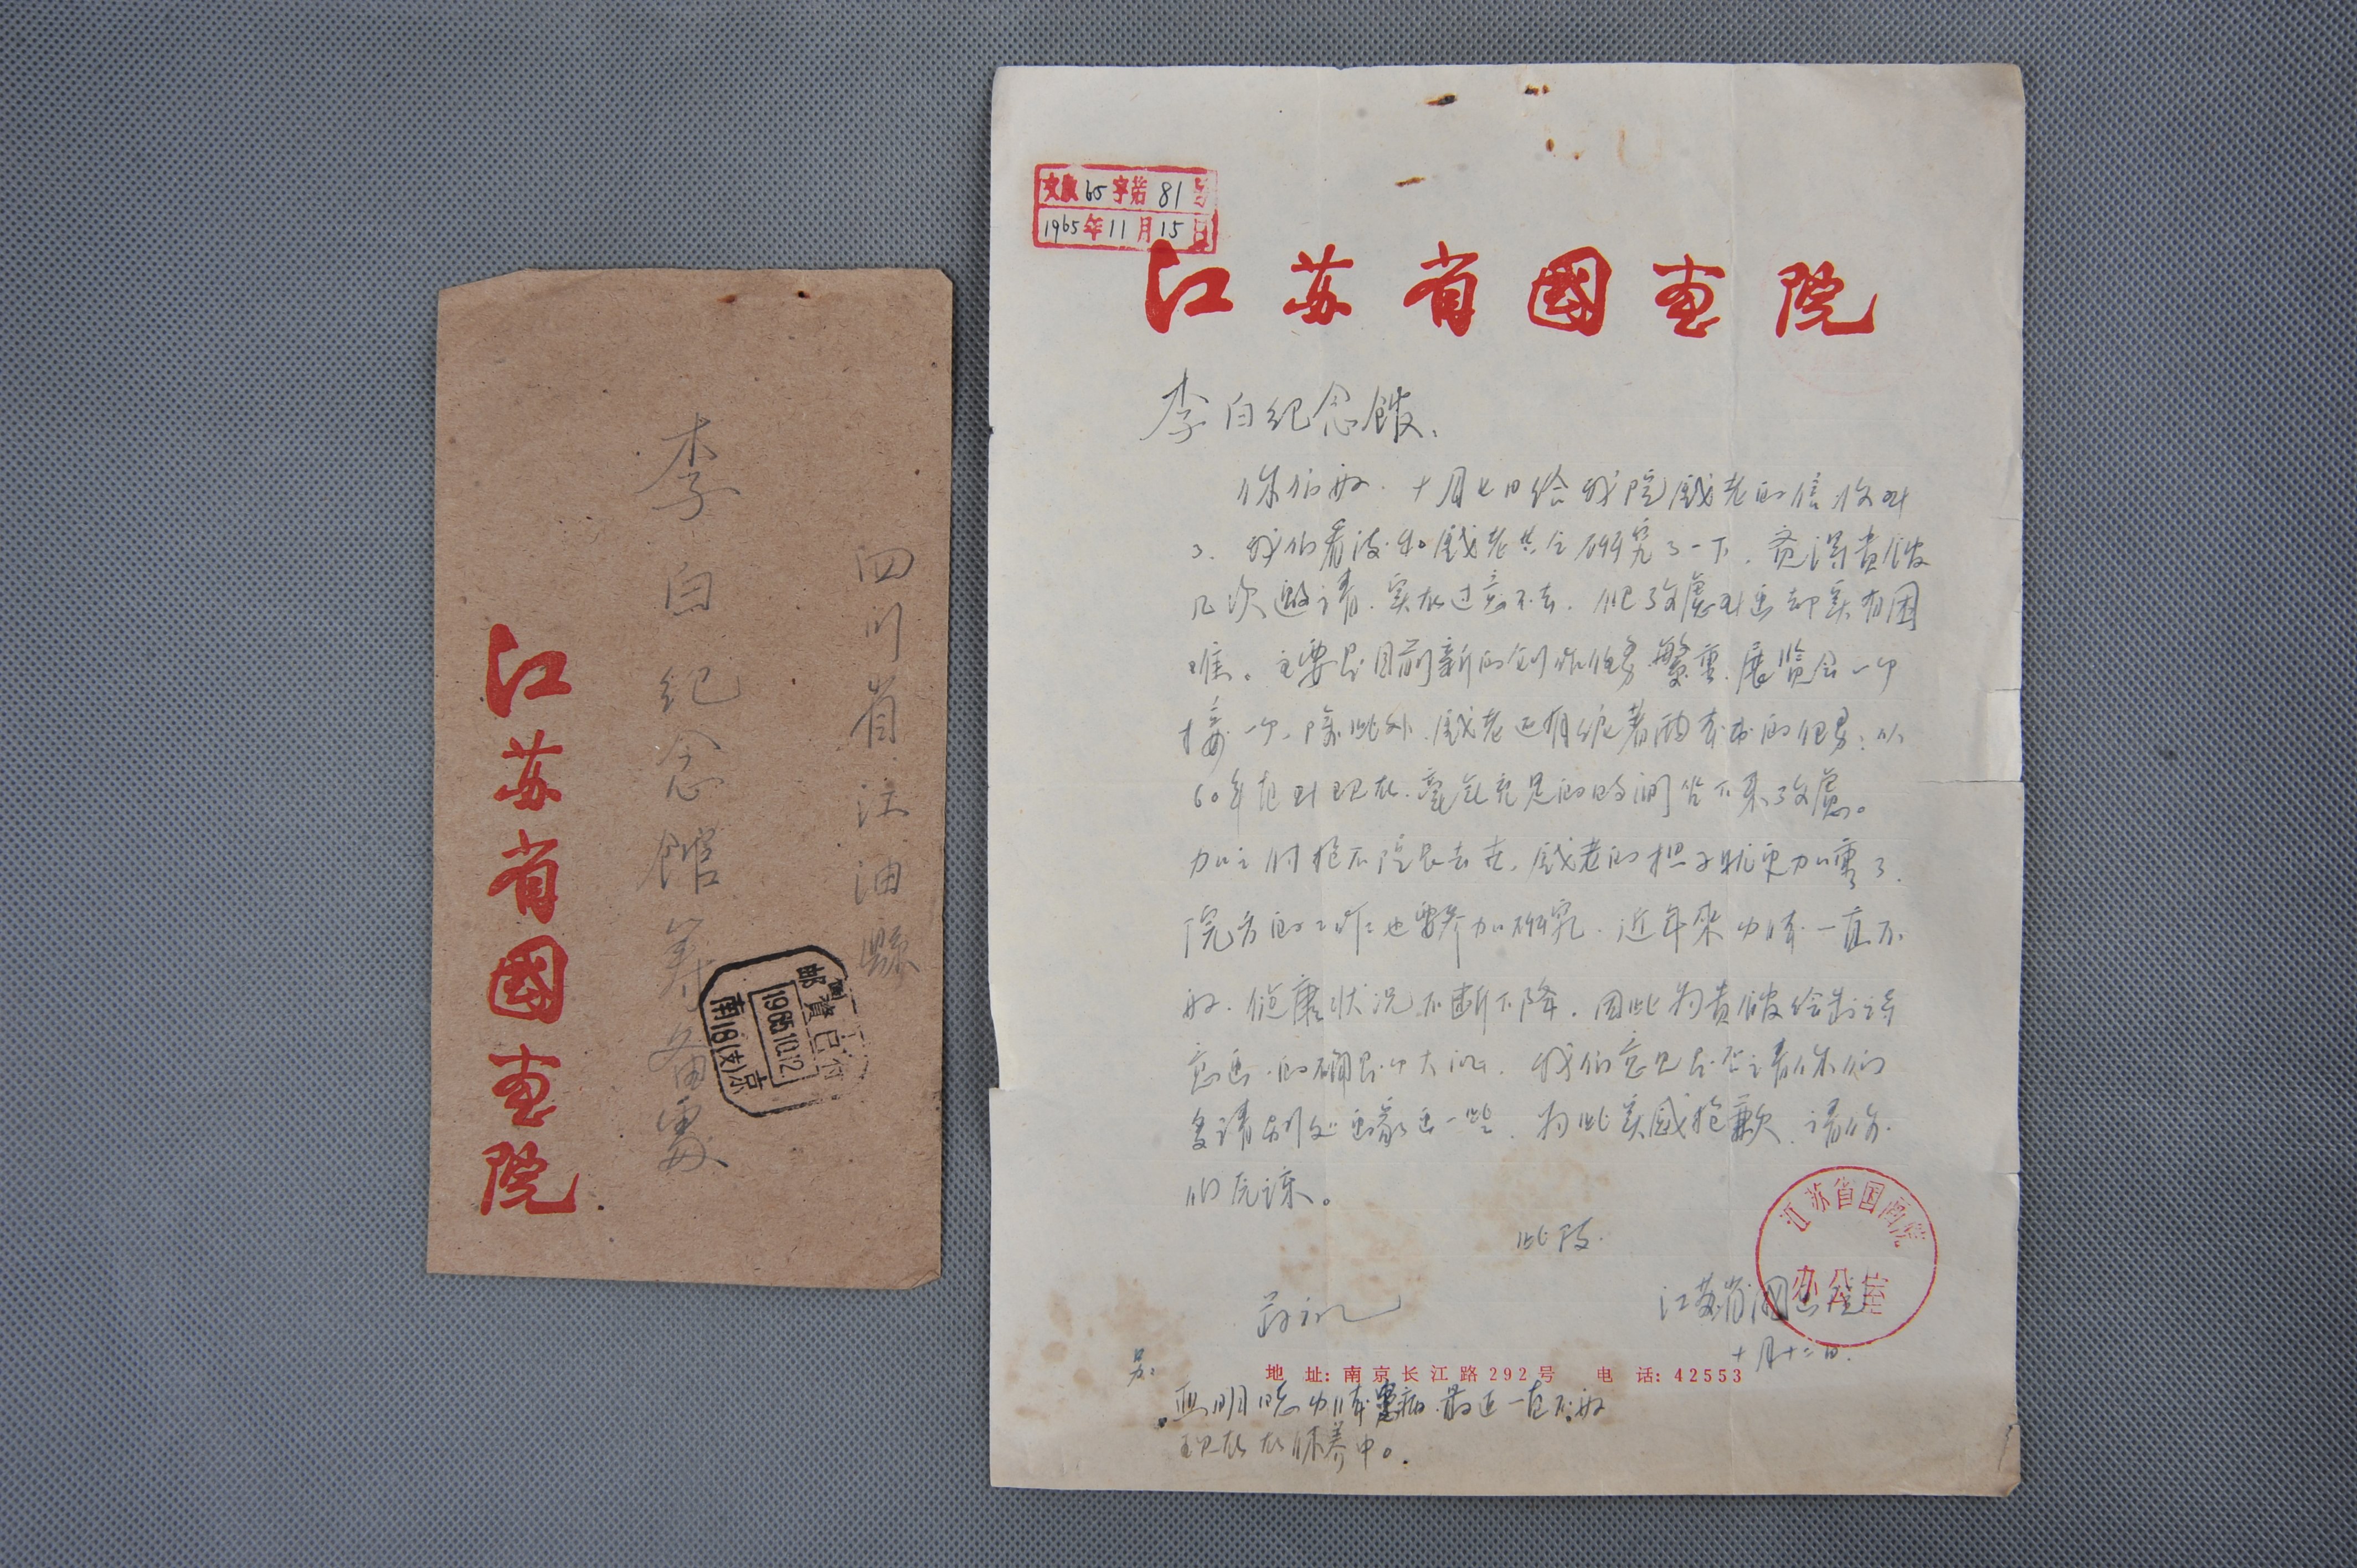 四川省江油縣
李白纪念館筹备處
江苏省國画院
邮資已付
1965.10.12.
南京
18(支)
文献65字第81号
1965年11月15日
江苏省國画院
李白纪念馆：
你们好．十月七日给我院钱老的信收到
了．我们看后和钱老共同研究了一下．觉得贵馆
几次邀请．实在过意不去．但考虑到画却实有困
难。主要是目前新的创作任务繁重．展览会一个
接一个．除此外．钱老还有编著两本书的任务：从
60年起到现在．毫无充足的时间坐下来考虑。
加之付抱石院长去世．钱老的担子就更加重了．
院方的工作也要参加研究．近年来力体一直不
好．健康状况不断下降．因此为贵馆绘制诗
意画．的确是个大问．我们意见是否请你们
多请别处画家画一些．为此实感抱歉．请你
们原谅。
此致
敬礼
江苏省国画院
十月十二日．
江苏省国画院
办公室
地 址：南京长江路292号 电 话：42553
另：
亚明同志力体患病．最近一直不好
现在在休养中。